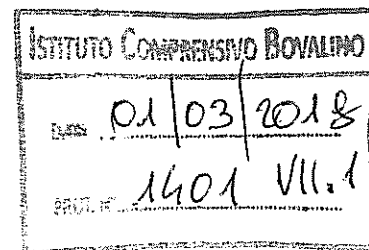 ISTITUTO COMPRENSIVO BOVALINO
DATA 01/03/2018
PROT. N° 1401 VII.1